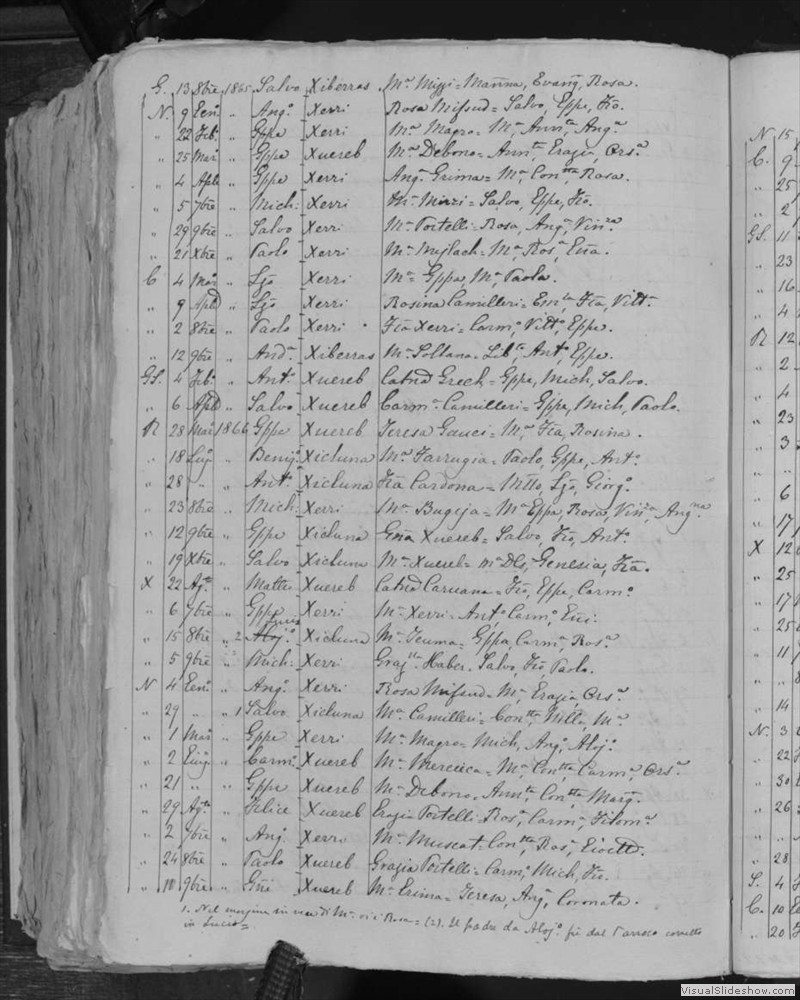 G. 13 8bre 1865 Salvo Xiberras Ma Mizzi = Marina, Evang, Rosa.
N. 9 Eeno " Ango Xerri Rosa Mifsud = Salvo, Eppe, Fro.
" 22 Feb. " Gppe Xerri Ma Magro = Ma, Annta, Anga
" 25 Mar " Gppe Xuereb Ma Debono = Annta, Erazia, Orsa
" 4 Aple " Gppe Xerri Anga Grima = Ma, Contta, Rosa.
" 5 7bre " Mich: Xerri Ma Mizzi = Salvo, Eppe, Fro.
" 29 9bre " Salvo Xerri Ma Portelli = Rosa, Anga, Vinza
" 21 Xbre " Paolo Xerri Ma = Ma, Rosa,
C 4 Mar " Ljo Xerri Ma = Gppa, Ma, Paola.
" 9 Aple " Ljo Xerri Rosina Camilleri = Fra, Vitt.
" 2 8bre " Paolo Xerri Fra Xerri = Carmo, Vitto, Eppe.
" 12 9bre " Anda Xiberras Ma Soltana = Liba, Anto, Eppe.
GS. 4 Feb. " Anto Xuereb Catna Grech = Gppe, Mich, Salvo.
" 6 Aple " Salvo Xuereb Carma Camilleri = Gppe, Mich, Paolo.
R 28 Mar 1866 Gppe Xuereb Teresa Gauci = Ma, Fra, Rosina.
" 18 Lug " Benigo Xicluna Ma Farrugia = Paolo, Gppe, Anto
" 28 " " Anto Xicluna Fra Cardona = Ljo, Giorgo
" 23 8bre " Mich: Xerri Ma Bugeja = Ma Eppa, Rosa, Vinza, Angna
" 12 9bre " Gppe Xicluna Gna Xuereb = Salvo, Fro, Anto
" 19 Xbre " Salvo Xicluna Ma Xuereb = Ma Dls, Genesia, Fra.
X 22 Agto " Matteo Xuereb Catna Caruana = Fro, Eppe, Carmo
" 6 7bre " Gppe Xerri Ma Xerri = Anto, Carmo,
Lucio
" 15 8bre " 2 Alojo Xicluna Ma Teuma = Gppa, Carma, Rosa
" 5 9bre " Mich: Xerri Haber = Salvo, Fro, Paolo.
N 4 Eeno " Ango Xerri Rosa Mifsud = Ma, Erazia, Orsa
" 29 " " 1 Salvo Xicluna Ma Camilleri = Contta, Ma
" 1 Mar " Gppe Xerri Ma Magro = Mich, Ango, Alojo
" 2 Lug " Carmo Xuereb Ma Mercieca = Ma, Contta, Carma, Orsa
" 21 " " Gppe Xuereb Ma Debono = Annta, Contta, Marga
" 29 Agto " Felice Xuereb Erazia Portelli = Rosa, Carma, Filoma
" 2 7bre " Ango Xerri Ma Muscat = Contta, Rosa,
" 24 8bre " Paolo Xuereb Grazia Portelli = Carmo, Mich, Fro.
" 10 9bre " Xuereb Ma Grima = Teresa, Anga, Coronata.
1. Nel margine in vece di Ma vi è Rosa = (2). Il padre da Alojo fù dal Parroco corretto
in Lucio =
N 15
C. 9
" 25
" 2
GS. 11
" 23
" 16
" 4
R 12
" 2
" 4
" 23
" 3
" 6
" 17
X 12
" 25
" 17
" 25
" 11
" 14
N. 3
" 22
" 30
" 26
" 28
S. 4
C. 10
" 20
VisualSlideshow.com